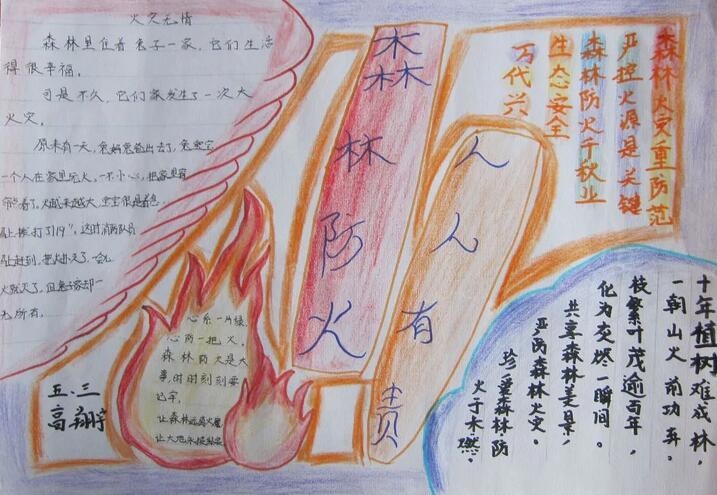 火灾无情
森林里住着兔子一家,它们生活
得很幸福。
可是不久,它们家发生了一次大
火灾。
原来有一天,兔妈兔爸出去了,兔宝宝
一个人在家里玩火,一不小心,把家里
着了。火越来越大,宝宝很是着急
上拨打了119",这时消防队员
赶到,把火
火就灭了,但兔子家却一
无所有。
心系一片绿,
心防一把火。
森林防火是大
事,时时刻刻要
记牢。
让森林远离火魔
让大地永
五、三
高翔宇
森林防火
人人有责
森林火灾重防范
严控火源是关键
森林防火千秋业
生态安全
万代兴
十年植树难成林,
一朝山火前功弃。
枝繁叶茂逾百年,
化为灾燃一瞬间。
共享森林美景,
严防森林火灾。
珍爱森林防
火于未燃。